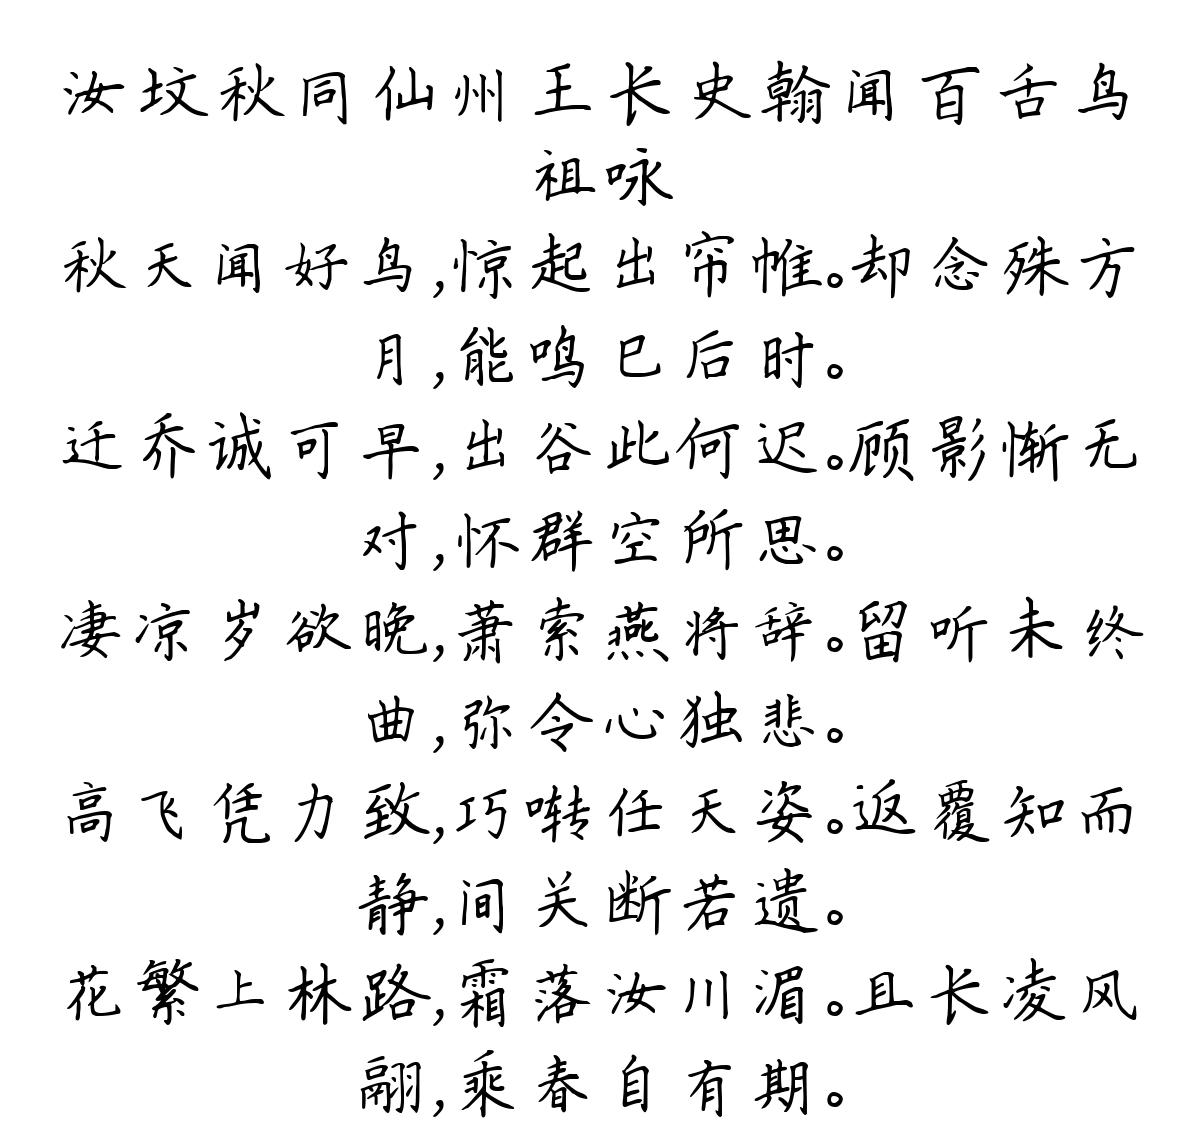 汝坟秋同仙州王长史翰闻百舌鸟
祖咏
秋天闻好鸟,惊起出帘帷。却念殊方
月,能鸣巳后时。
迁乔诚可早,出谷此何迟。顾影惭无
对,怀群空所思。
凄凉岁欲晚,萧索燕将辞。留听未终
曲,弥令心独悲。
高飞凭力致,巧啭任天姿。返覆知而
静,间关断若遗。
花繁上林路,霜落汝川湄。且长凌风
翮,乘春自有期。